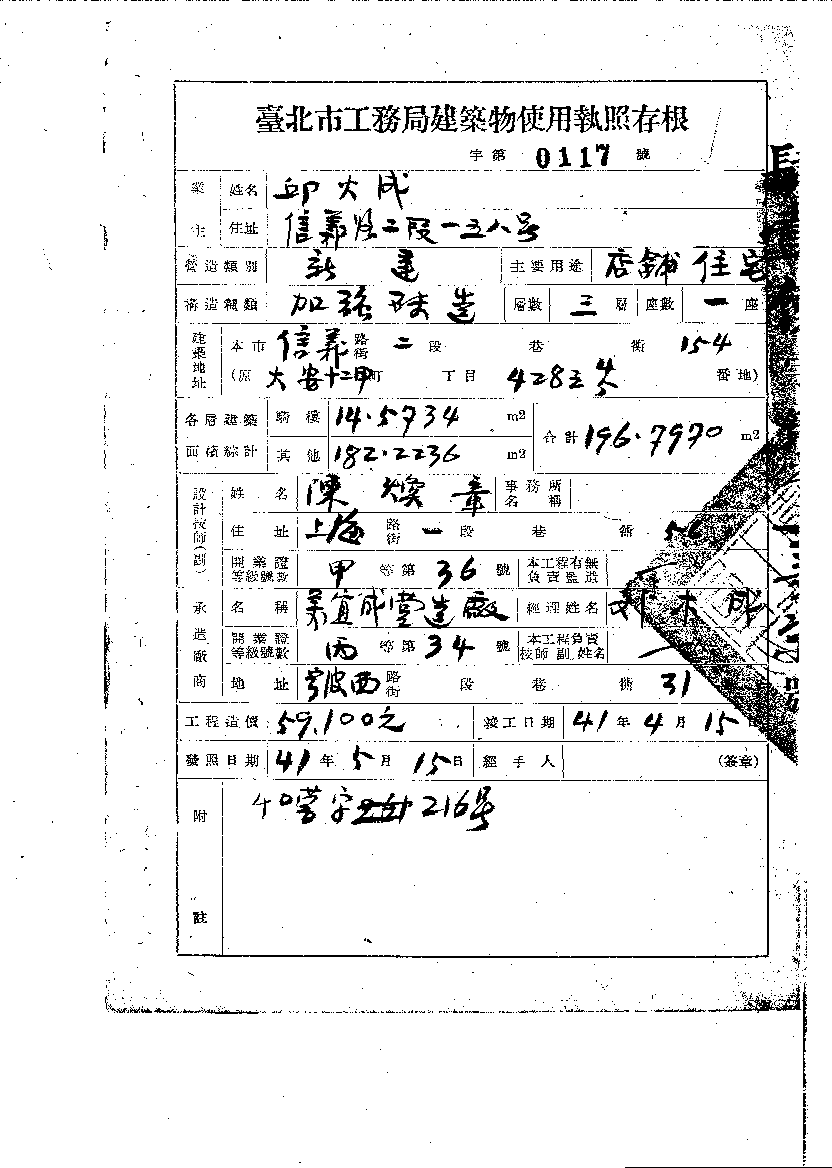 臺北市工務局建築物使用執照存根
字第 0117 號
業主 姓名 邱大成
住址 信義路二段一五八号
營造類別 新建 主要用途 店舖住宅
構造種類 加強磚造 層數 三層 座數 一座
建築地址 本市 信義 路街 二段 巷 衖 154
(原 大安十二甲 町 丁目 428 番地)
各層建築面積綜計 騎樓 14.5734 m2 合計 196.7970 m2
其他 182.2236 m2
設計技師(副) 姓名 陳煥章 事務所名稱
住址 上海 路街 一段 巷 衖 56
開業證等級號數 甲等第 36 號 本工程有無負責監造
承造廠商 名稱 營造廠 經理姓名
開業證等級號數 丙等第 34 號 本工程負責技師副姓名
地址 寧波西 路街 段 巷 衖 31
工程造價 59,100元 竣工日期 41年4月15日
發照日期 41年5月15日 經手人 (簽章)
附註 40營字 216号